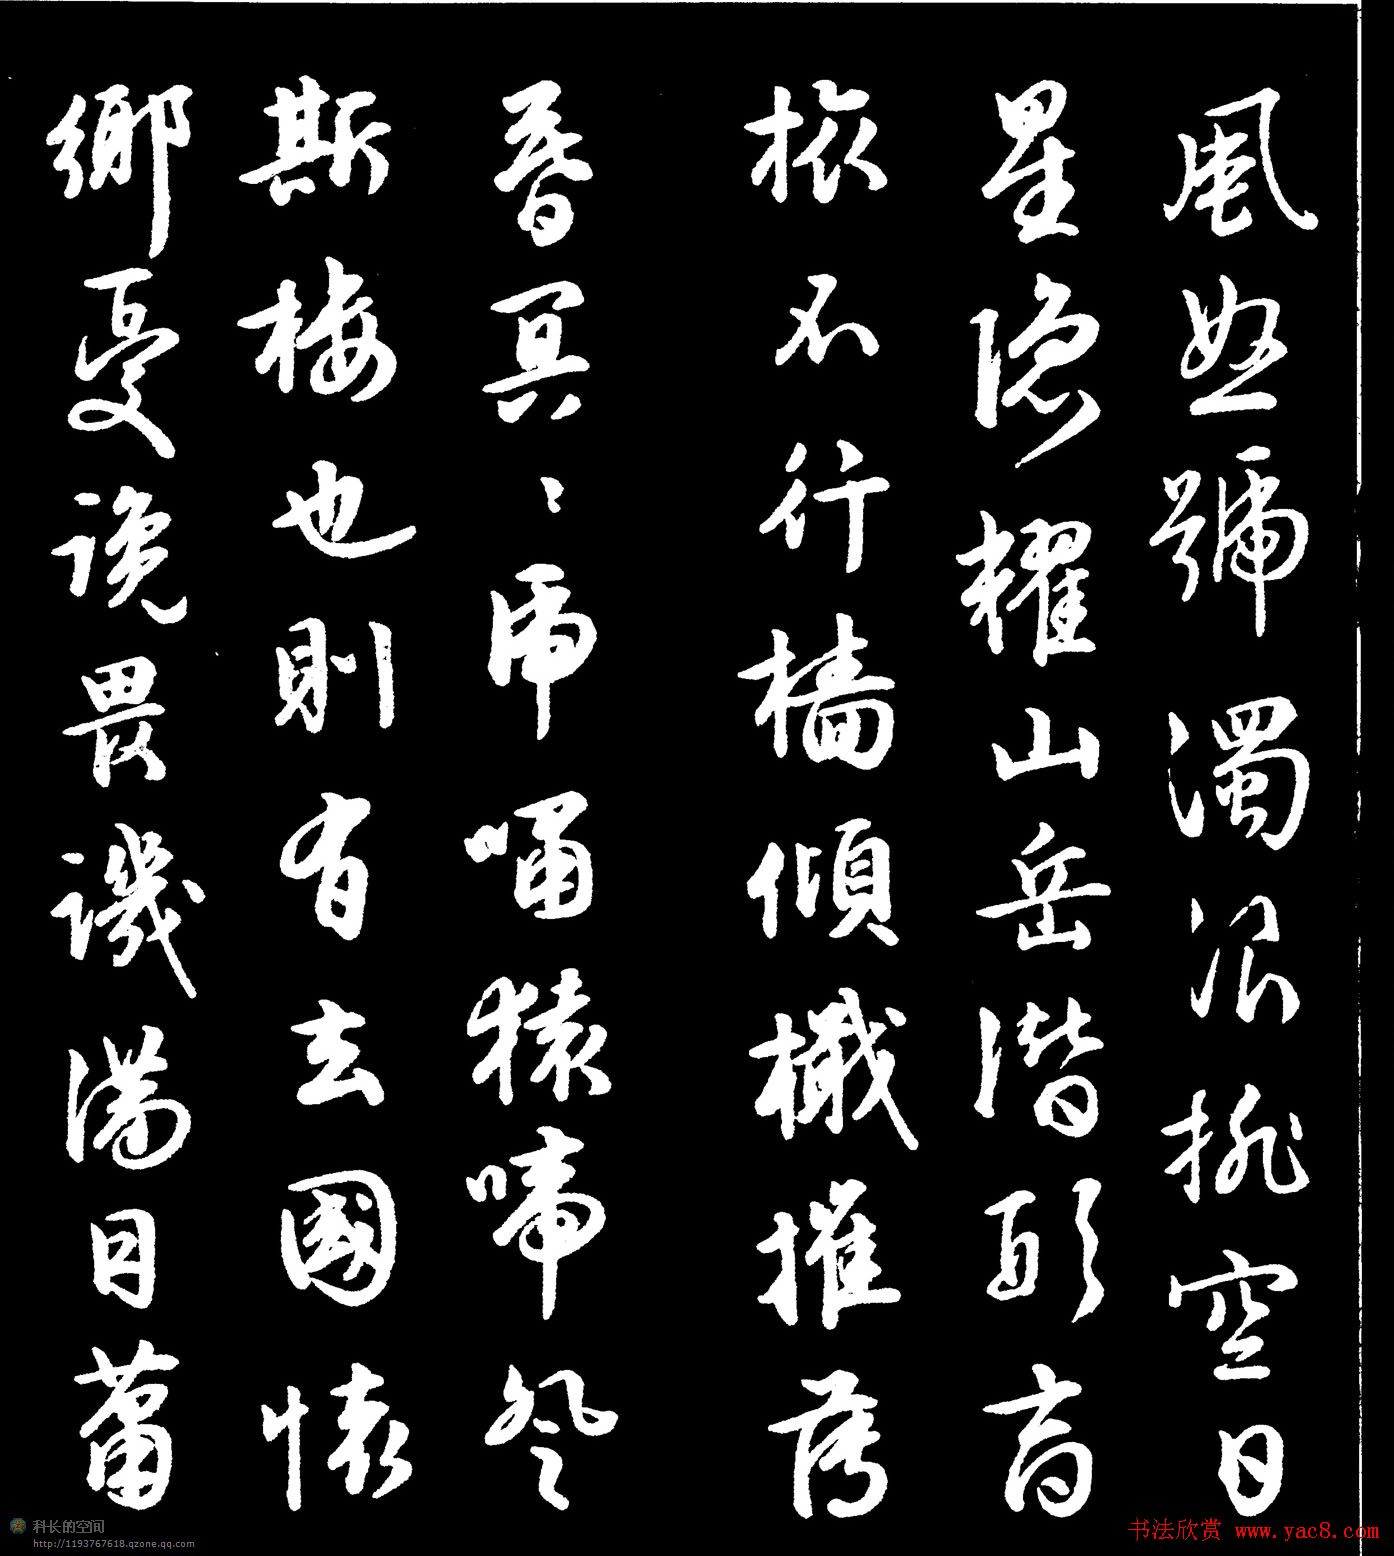 風怒號濁浪排空日
星隐耀山岳潛形商
旅不行檣傾檝摧薄
暮冥〻虎嘯猿啼登
斯樓也則有去國懷
鄉憂讒畏譏滿目蕭
科长的空间
http://1193767618.qzone.qq.com
书法欣赏 www.yac8.com